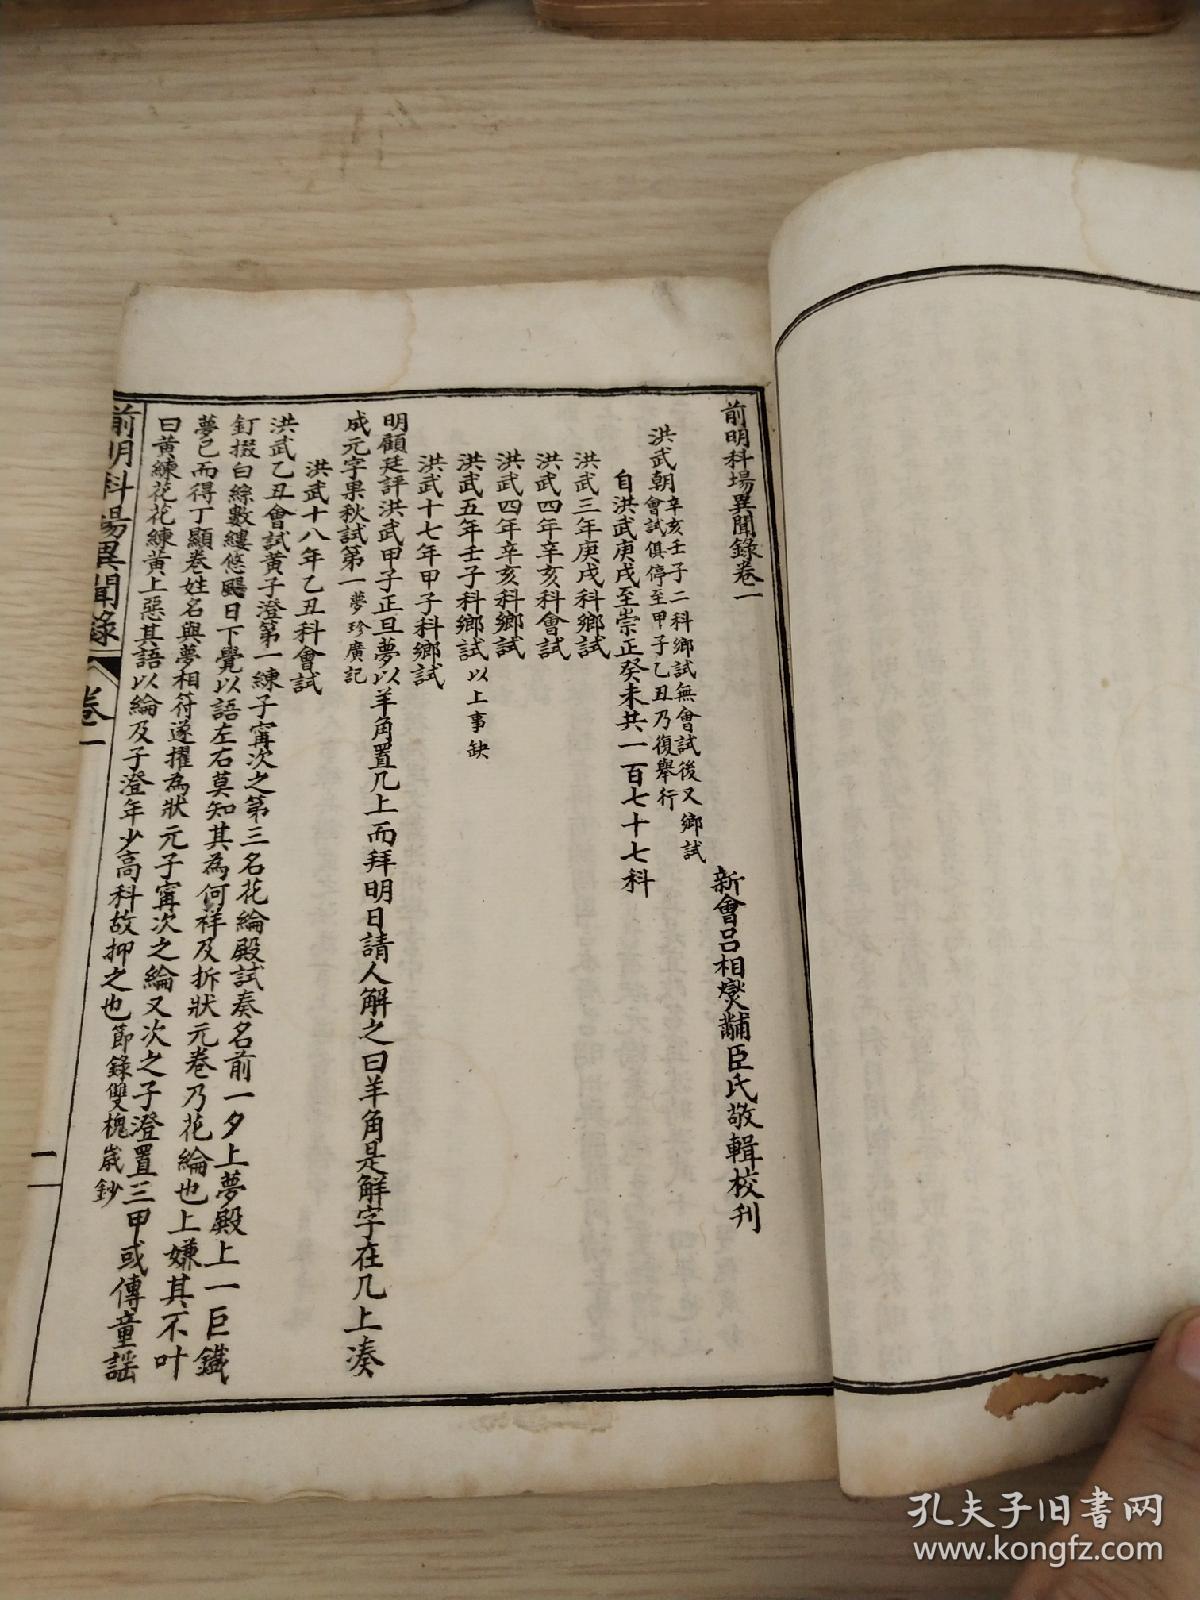 前明科場異聞錄卷一
新會呂相燮黼臣氏敬輯校刊
洪武朝
辛亥壬子二科鄉試無會試後又鄉試
會試俱停至甲子乙丑乃復舉行
自洪武庚戌至崇正癸未共一百七十七科
洪武三年庚戌科鄉試
洪武四年辛亥科會試
洪武四年辛亥科鄉試
洪武五年壬子科鄉試以上事缺
洪武十七年甲子科鄉試
明顧廷評洪武甲子正旦夢以羊角置几上而拜明日請人解之曰羊角是解字在几上湊
成元字果秋試第一夢珍廣記
洪武十八年乙丑科會試
洪武乙丑會試黃子澄第一練子甯次之第三名花綸殿試奏名前一夕上夢殿上一巨鐵
釘掇白綜數縷悠颺日下覺以語左右莫知其為何祥及拆狀元卷乃花綸也上嫌其不叶
夢已而得丁顯卷姓名與夢相符遂擢為狀元子甯次之綸又次之子澄置三甲或傳童謠
曰黃練花花練黃上惡其語以綸及子澄年少高科故抑之也節錄雙槐歲鈔
前明科場異聞錄
卷一
一
孔夫子旧书网
www.kongfz.com